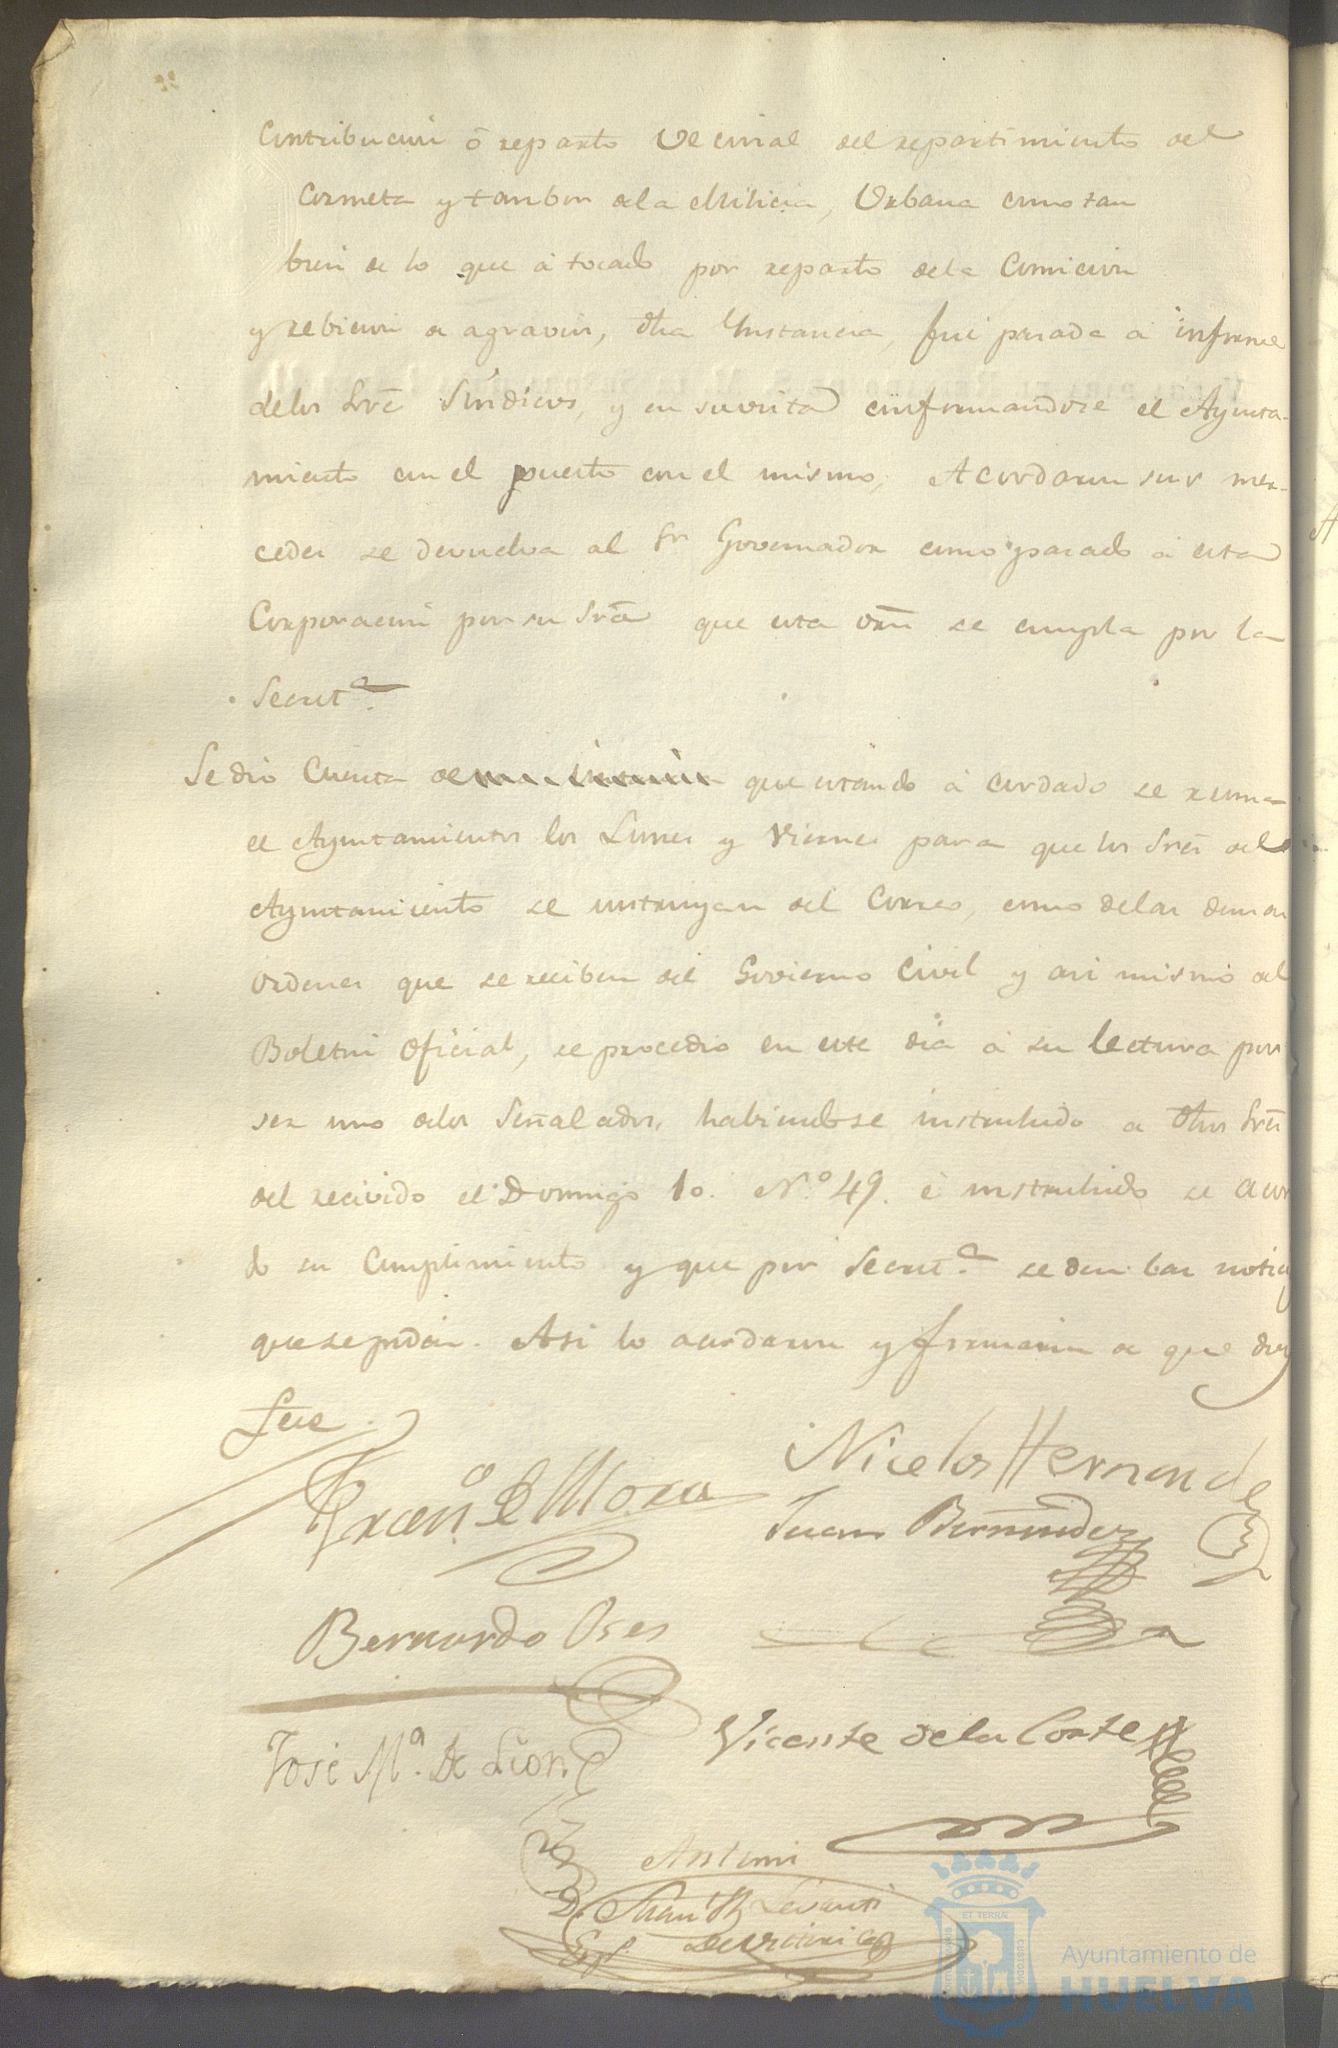 Contribucion ó reparto Vecinal del repartimiento del
Corneta y tanbien dela Milicia, Urbana como tan
bien de lo que á tocado por reparto dela Comicion
y rebicion de agravios, dha Ynstancia, fué pasada á informe
delos Sres Sindicos, y en su vista conformandose el Ayunta-
miento con el puesto con el mismo, Acordaron sus mer-
cedes se devuelva al Sr Governador como pasado á esta
Corporacion por su Sria que esta orn se cumpla por la
Secret.ª
Se dio Cuenta de que estando á cordado se reuna
el Ayuntamientos los Lunes y Viernes para que los Sres del
Ayuntamiento se instruyan del Correo, como delas demas
ordenes que se reciben del Govierno Civil y asi mismo del
Boletin Oficial, se procedio en este dia á su lectura por
ser uno delos Señalados, habiendose instruhido a dhos Sres
del recivido el Domingo 10. N.º 49. é instruhido se acor
do su Cumplimiento y que por Secret.ª se den las noticias
que se pidan. Asi lo acordaron y firmaron de que doy
fee.
Francº de Mora
Nicolas Hernandez
Juan Bermudez
Bernardo Oses
José Mª. De Leon
Vicente de la Corte
Antemi
Escrivº
ET TERRÆ
CUSTODIA
Ayuntamiento de
HUELVA